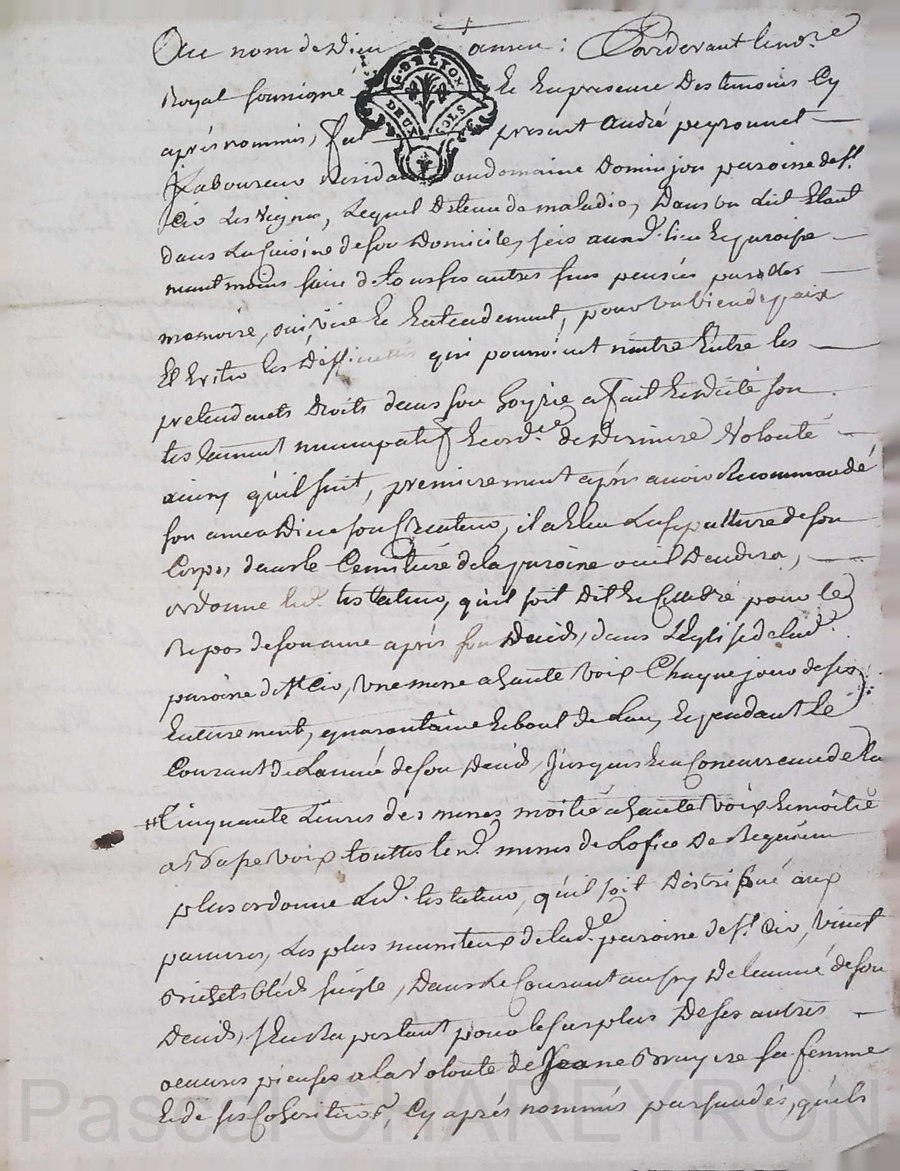 Au nom de Dieu amen : Pardevant le no.re
G. DE LYON
DEUX SOLS
Royal soussigné Et En presence Des temoins Cy
après nommés, fut present André peyronnet
Laboureur Residant au domaine Dominjon paroine de st.
Cir Les vignes, Lequel Detenu de maladie, Dans un Lit Etant
dans La Cuisine de son Domicile, scis aud. lieu Et paroisse
neantmoins sain de tous ses autres sens pensées parolles
memoire, ouïe Et Entendement, pour un bien de paix
Et Eviter les Difficultés qui pouroient naitre Entre les
pretendants Droits dans son hoyrie a fait Et dicté son
testament nuncupatif Et ord.ce de Derniere Volonté
ainsy qu'il suit, premierement après avoir Recommandé
son ame a Dieu son Createur, il a Elu La sepulture de son
Corps, dans le Cemitiere de la paroine ou il Decedera,
ordonne led. testateur, qu'il soit Dit Et Celebré pour le
Repos de son ame après son Decès, dans L'Eglise de lad.
paroine de st Cir, une messe a haute voix Chaque jour de son
Enterrement, quarantaine Et bout de L'an, Et pendant Le
Courant de L'année de son Decès, Jusques En Concurrance de la
Cinquante Livres des messes moitié a haute voix Et moitié
a Basse voix touttes lesd. messes de L'ofice De Requiem
plus ordonne Led. testateur, qu'il soit Distribué aux
pauvres, Les plus necessiteux de lad.e paroine de st. Cir, vingt
Bichets bled seigle, Dans Le Courant aussy De l'année de son
Decès, s'En Raportant pour le surplus De ses autres
oeuvres pieuses a la Volonté de Jeane Bruyere sa femme
Et de ses Coheritiers, Cy après nommés persuadés, qu'ils
Pascal CHAREYRON